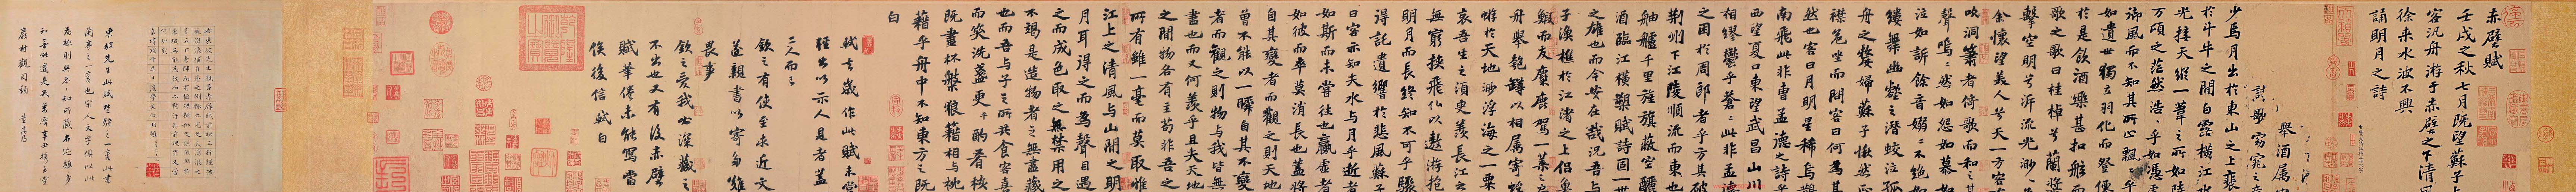 赤壁賦
壬戌之秋七月既望蘇子與
客汎舟游于赤壁之下清風
徐來水波不興 舉酒屬客
誦明月之詩 歌窈窕之章
少焉月出於東山之上裴回
於斗牛之間白露橫江水
光接天縱一葦之所如
万頃之茫然浩浩乎如馮虛
御風而不知其所止飄飄乎
如遺世獨立羽化而登僊
於是飲酒樂甚扣舷而
歌之歌曰桂棹兮蘭槳
擊空明兮泝流光渺渺兮
余懷望美人兮天一方客有
吹洞簫者倚歌而和之其
聲嗚嗚然如怨如慕如
注如訴餘音嫋嫋不絕如
縷舞幽壑之潛蛟泣孤
舟之嫠婦蘇子愀然正
襟危坐而問客曰何為其
然也客曰月明星稀烏鵲
南飛此非曹孟德之詩乎
西望夏口東望武昌山川
相繆鬱乎蒼蒼此非孟德
之困於周郎者乎方其破
荊州下江陵順流而東也
舳艫千里旌旗蔽空釃
酒臨江橫槊賦詩固一世
之雄也而今安在哉況吾與
子漁樵於江渚之上侶魚
鰕而友麋鹿駕一葉之扁
舟舉匏罇以相屬寄蜉
蝣於天地渺浮海之一粟
哀吾生之須臾羨長江之
無窮挾飛仙以遨游抱
明月而長終知不可乎驟
得託遺響於悲風蘇子
曰客亦知夫水與月乎逝者
如斯而未嘗往也贏虛者
如彼而卒莫消長也蓋將
自其變者而觀之則天地
曾不能以一瞬自其不變
者而觀之則物與我皆無
盡也而又何羨乎且夫天地
之間物各有主苟非吾之
所有雖一毫而莫取惟
江上之清風與山間之明
月耳得之而為聲目遇
之而成色取之無禁用之
不竭是造物者之無盡藏
也而吾與子之所共食客喜
而笑洗盞更酌肴核
既盡杯盤狼藉相與枕
藉乎舟中不知東方之既
白
軾去歲作此賦未嘗
輕出以示人見者蓋
一二人而已
欽之有使至求近文
遂親書以寄多難
畏事
欽之愛我必深藏之
不出也又有後赤壁
賦筆倦未能寫當
俟後信軾白
東坡先生此賦楚騷之一變此書
蘭亭之一變也宋人文字俱以此
為極則與參和知所藏名迹雖多
知無能逾是矣萬曆辛丑攜至靈
巖村觀因題 董其昌